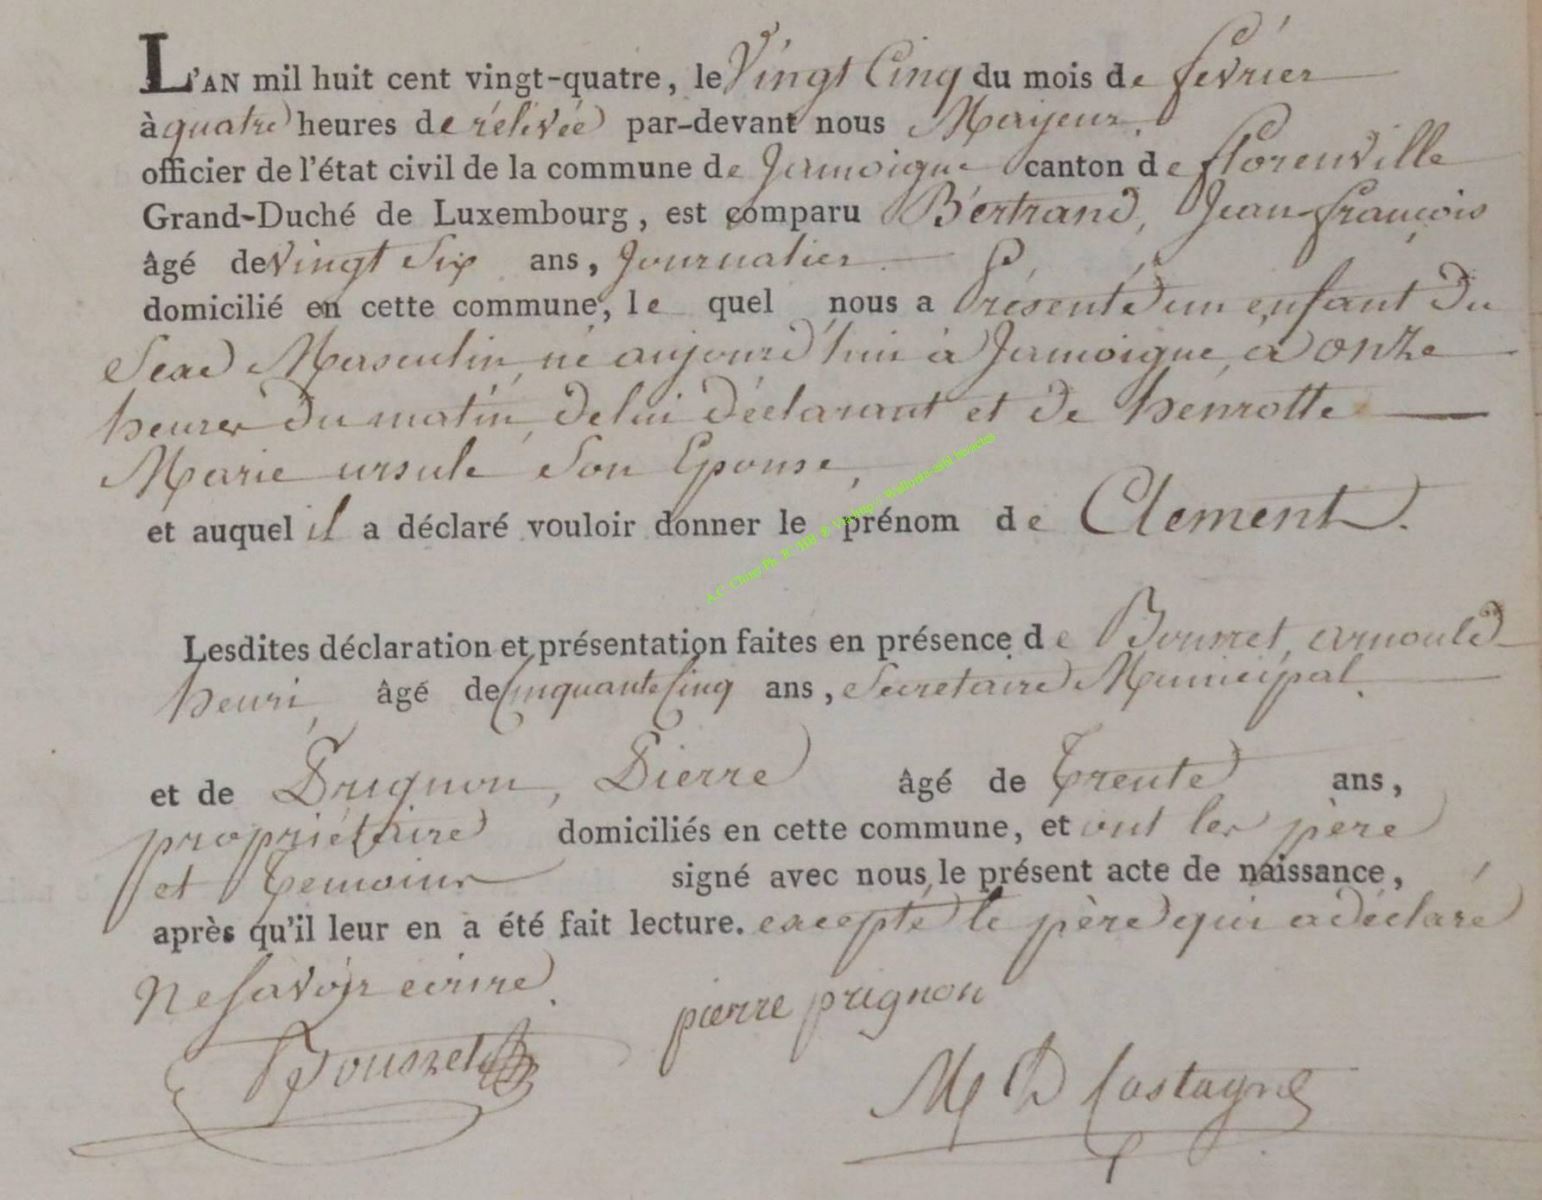 L'AN mil huit cent vingt-quatre, le Vingt Cinq du mois de février
à quatre heures de rélévée par-devant nous Mayeur,
officier de l'état civil de la commune de Jamoigne canton de florenville
Grand-Duché de Luxembourg, est comparu Bertrand, Jean-françois
âgé de Vingt Six ans, Journalier
domicilié en cette commune, le quel nous a Présenté un enfant du
Sexe Masculin, né aujourd'hui à Jamoigne, à onze
heures du matin, de lui déclarant et de henrotte
Marie ursule Son Epouse,
et auquel il a déclaré vouloir donner le prénom de Clement.
Lesdites déclaration et présentation faites en présence de Bousret, arnould
henri, âgé de Cinquante Cinq ans, Secretaire Municipal.
et de Prignon, Pierre âgé de Trente ans,
propriétaire domiciliés en cette commune, et ont les père
et Temoins signé avec nous le présent acte de naissance,
après qu'il leur en a été fait lecture. excepté le père qui a déclaré
Ne Savoir ecrire.
pierre prignon
Bousret
M D Castagne